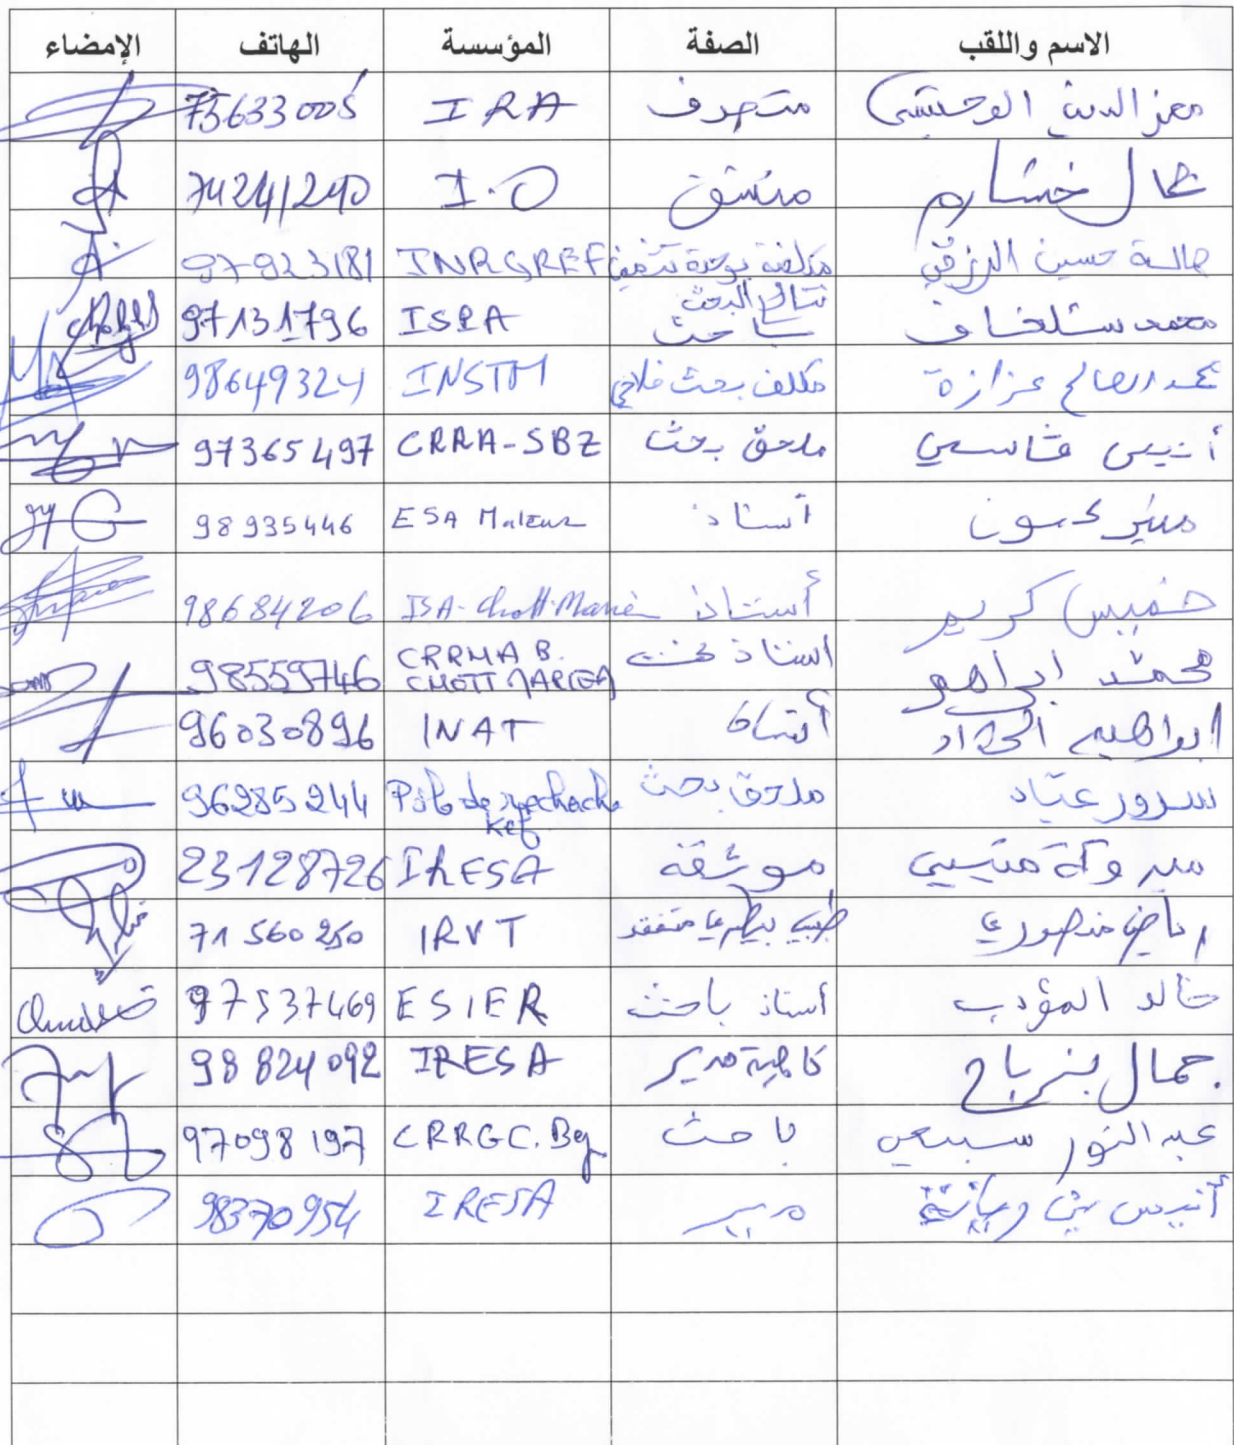 الاسم واللقب الصفة المؤسسة الهاتف الإمضاء
معز الدين الوحيشي متصرف IRA 75633005
خشارم منسق I.O 74241240
هالة حسين الرزقي مكلفة بوحدة تثمين نتائج البحث INRGREF 97923181
محمد باحث ISPA 97131796
محمد الصالح عزازة مكلف بحث فلاحي INSTM 98649324
أنيس قاسمي ملحق بحث CRRA-SBZ 97365497
منير حسون أستاذ ESA Mateur 98935446
خميس كريم أستاذ ISA-chott-Marie 98684206
محمد أستاذ بحث CRRHAB. CHOTT MARIEM 98559746
ابراهيم الحداد أستاذ INAT 96030896
سرور عياد ملحق بحث Pôle de recherche Kef 96285244
مبروكة موثقة IRESA 23128726
رياض منصوري طبيب بيطري متفقد IRVT 71560250
خالد المؤدب أستاذ باحث ESIER 97537469
جمال بنرباح كاهية مدير IRESA 98824092
عبد النور سبيعي باحث CRRGC.Beja 97098197
أنيس بن مدير IRESA 98370954